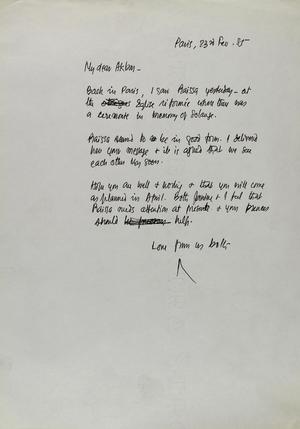 Paris, 23rd Feb. 85
My dear Akbar –
Back in Paris, I saw Raissa yesterday – at
the Eglise réformée when there was
a ceremonie in memory of Solange.
Raissa seemed to be in good form. I delivered
her your message & it is agreed that we see
each other very soon.
Hope you are well & working & that you will come
as planned in April. Both & I feel that
Raissa needs attention at present & your presence
should help.
Love from us both